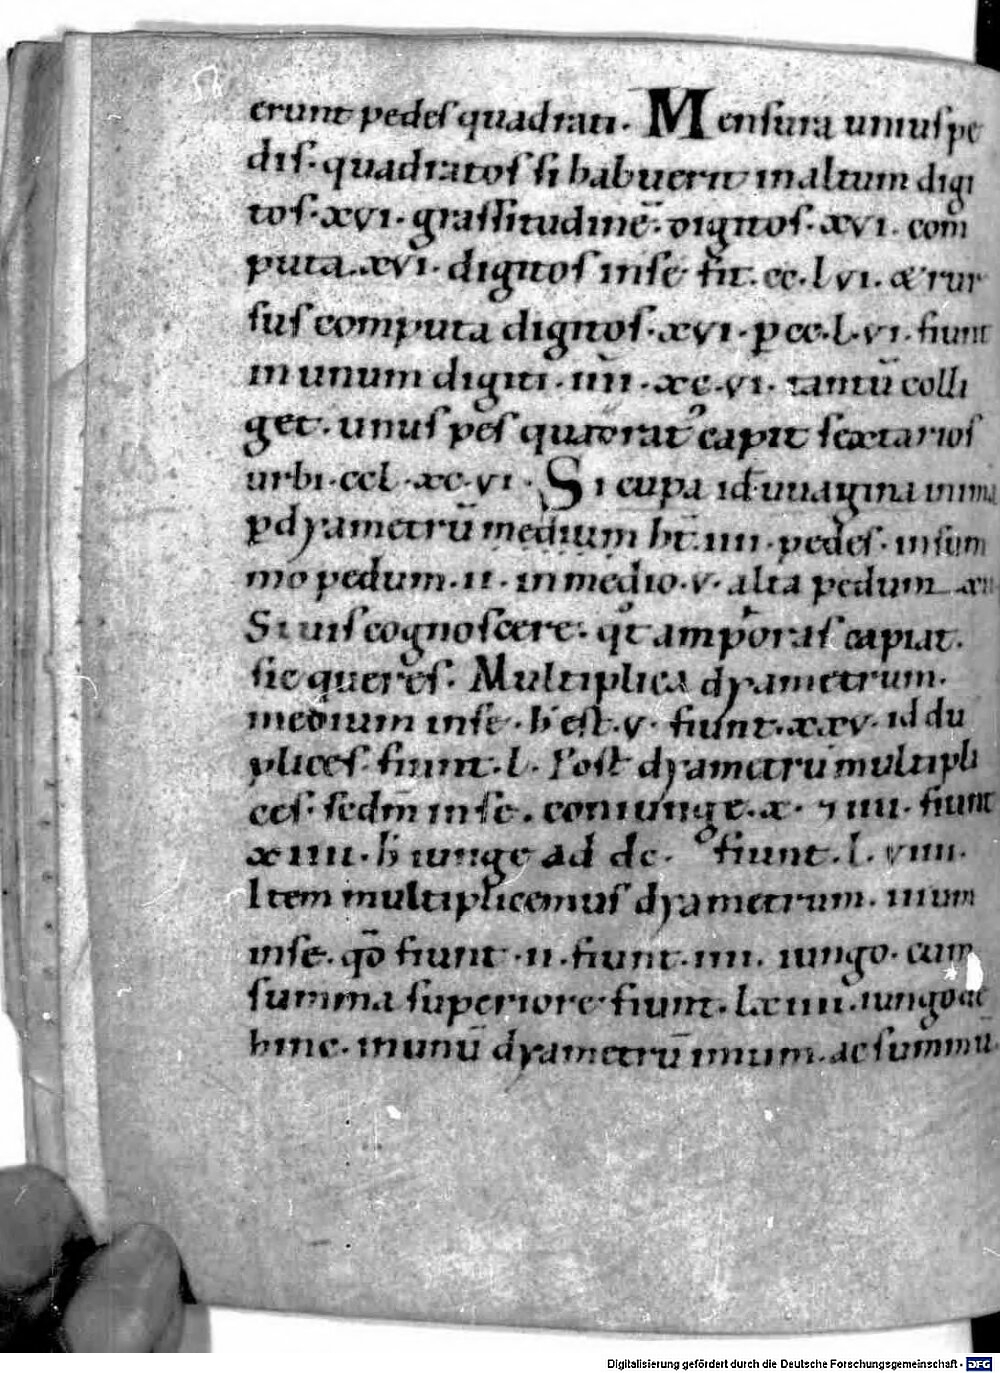 erunt pedes quadrati. Mensura unius pe
dis. quadratos si habuerit in altum digi
tos. xvi. grassitudinē. digitos. xvi. com
puta. xvi. digitos inse fit. cc. l vi. & rur
sus computa digitos. xvi. p cc. l. vi. fiunt
in unum digiti. iiii. xc. vi. tantū colli
get. unus pes quadrat' capit sextarios
urbi. ccl. xc. vi. Si cupa id. uuagina
p dyametrū medium ht. iiii. pedes. insum
mo pedum. ii. in medio. v. alta pedum
Si uis cognoscere. qt amporas capiat.
sic queres. Multiplica dyametrum.
medium inse. h est. v. fiunt. xxv. id du
plices. fiunt. l. Post dyametrū multipli
ces. sedm inse. coniunge. x. ⁊ iiii. fiunt
xiiii. h iunge ad de. fiunt. l. viiii.
Item multiplicemus dyametrum. imum
inse. qō fiunt. ii. fiunt. iiii. iungo. cum
summa superiore. fiunt. lxiiii. iungo ac
hinc. inunū dyametrū imum. ac summū
Digitalisierung gefördert durch die Deutsche Forschungsgemeinschaft - DFG